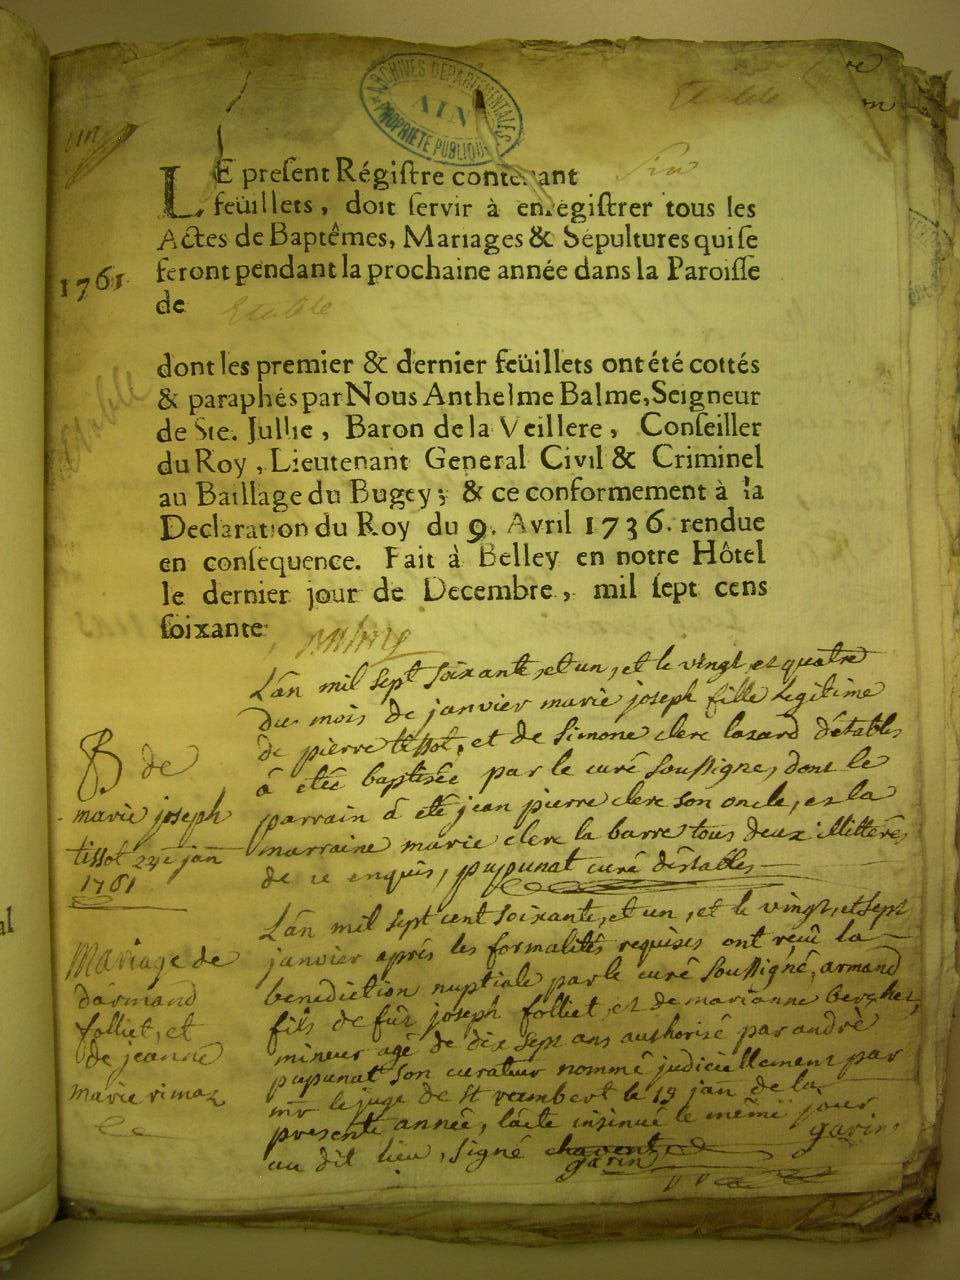 ARCHIVES DÉPARTEMENTALES
AIN
PROPRIÉTÉ PUBLIQUE
Etable
LE preſent Régiſtre contenant Six
feüillets, doit ſervir à enregiſtrer tous les
Actes de Baptêmes, Mariages & Sépultures qui ſe
1761. feront pendant la prochaine année dans la Paroiſſe
de Etable
dont les premier & dernier feüillets ont été cottés
& paraphés par Nous Anthelme Balme, Seigneur
de Ste. Jullie, Baron de la Veillere, Conſeiller
du Roy, Lieutenant General Civil & Criminel
au Bailliage du Bugey; & ce conformement à la
Declaration du Roy du 9. Avril 1736. rendue
en conſequence. Fait à Belley en notre Hôtel
le dernier jour de Decembre, mil ſept cens
ſoixante
B de
marie joseph
tissot 24e jan
1761
L'an mil sept soixante, et un, et le vingt, et quatre
du mois de janvier marie joseph fille legitime
de pierre tissot, et de Simone clerc lazard d'étables
à étée baptisée par le curé soussigne, dont le
parrain à été jean pierre clerc son oncle, et la
marraine marie clerc la barre tous deux illitterés
de ce enquis, pupunat curé d'étables
Mariage de
d'armand
folliet, et
de jeanne
marie rimaz
L'an mil sept cent soixante, et un, et le vingt, et sept
janvier aprés les formalités requises ont reçu la
benediction nuptiale par le curé soussigné, armand
fils de fût joseph folliet, et de marianne bercher,
mineur agé de dix sept ans authorisé par andré
pupunat son curateur nommé judiciellement par
mr le juge de st rambert le 19 jan de la
presente année, l'acte insinué le même jour
au dit lieu, signé garin
garin